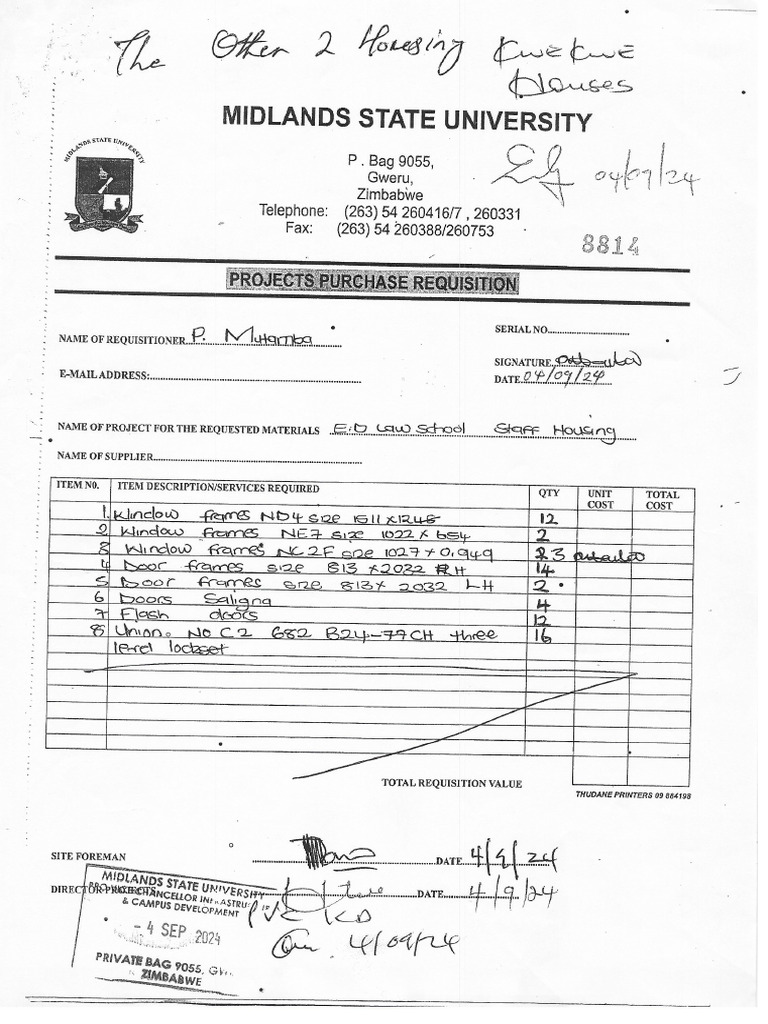 The Other 2 Housing KweKwe
Houses
MIDLANDS STATE UNIVERSITY
MIDLANDS STATE UNIVERSITY
P . Bag 9055,
Gweru,
Zimbabwe
04/09/24
Telephone: (263) 54 260416/7 , 260331
Fax: (263) 54 260388/260753
8814
PROJECTS PURCHASE REQUISITION
NAME OF REQUISITIONER P. Mutamba
SERIAL NO.
SIGNATURE
E-MAIL ADDRESS:
DATE 04/09/24
NAME OF PROJECT FOR THE REQUESTED MATERIALS E.D Law School Staff Housing
NAME OF SUPPLIER
ITEM N0. ITEM DESCRIPTION/SERVICES REQUIRED QTY UNIT COST TOTAL COST
1. Window frames ND4 size 1511 x 1245 12
2 Window frames NE7 size 1022 x 654 2
3 Window frames NC2F size 1027 x 0,949 3
4 Door frames size 813 x 2032 RH 14
5 Door frames size 813 x 2032 LH 2
6 Doors Saligna 4
7 Flash doors 12
8 Union. No C2 682 B24-77CH three 16
lockset
TOTAL REQUISITION VALUE
THUDANE PRINTERS 09 884198
SITE FOREMAN DATE 4/9/24
DIRECTOR PROJECTS DATE 4/9/24
MIDLANDS STATE UNIVERSITY
& CAMPUS DEVELOPMENT
- 4 SEP 2024
4/09/24
PRIVATE BAG 9055,
ZIMBABWE